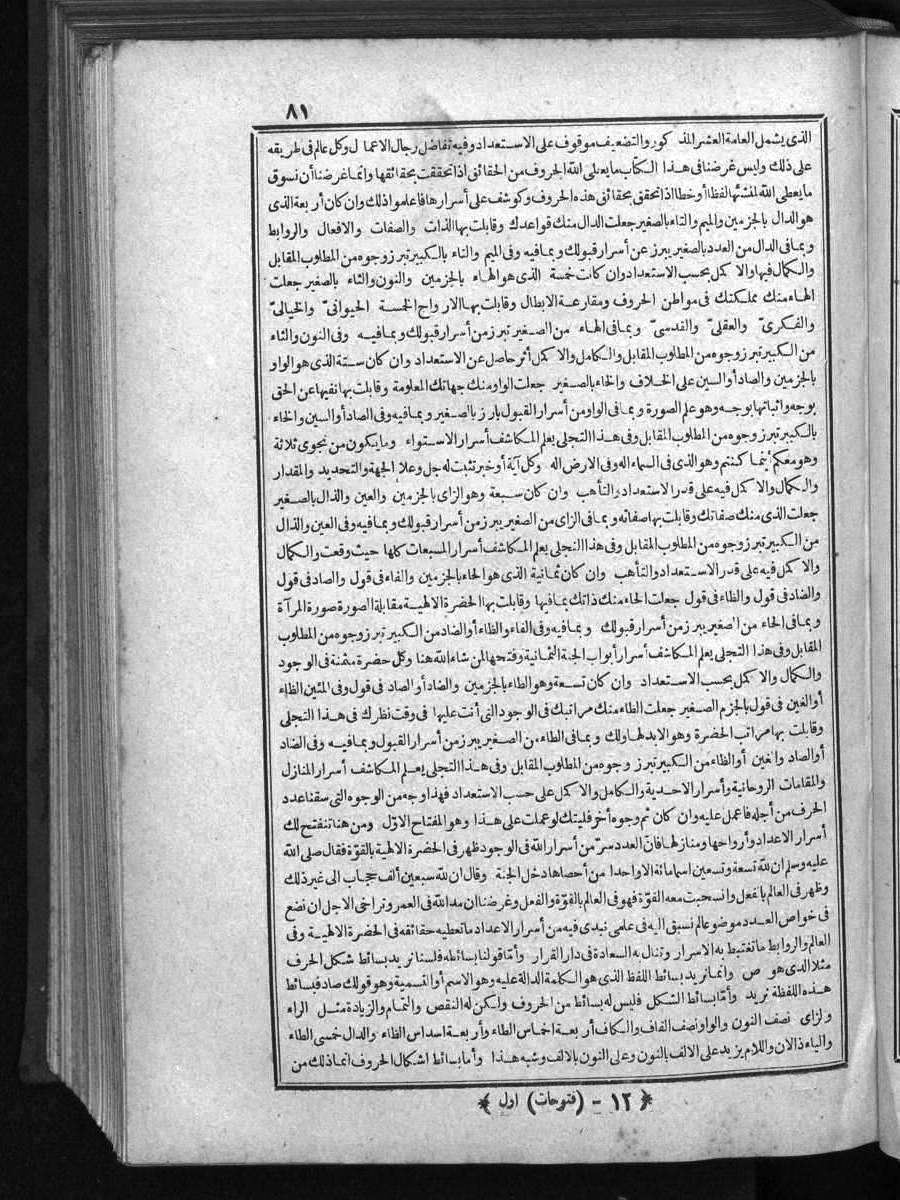 ٨١
الذى يشمل العامة العشر المذ كور والتضعيف موقوف على الاستعداد وفيه تفاضل رجال الاعمال وكل عالم فى طريقه
على ذلك وليس غرضنا فى هذا الكتاب ما يعطى الله الحروف من الحقائق اذا تحققت بحقائقها وانما غرضنا أن نسوق
ما يعطى الله لمنشئها لفظا أو خطا اذا تحقق بحقائق هذه الحروف وكوشف على أسرارها فاعلموا ذلك وان كان أربعة الذى
هو الدال بالجزمين والميم والتاء بالصغير جعلت الدال منك قواعدك وقابلت بها الذات والصفات والافعال والروابط
وبما فى الدال من العدد بالصغير يبرز عن أسرار قبولك وبما فيه وفى الميم والتاء بالكبير تبرز وجوه من المطلوب المقابل
والكمال فيها والاكمل بحسب الاستعداد وان كانت خمسة الذى هو الهاء بالجزمين والنون والثاء بالصغير جعلت
الهاء منك مملكتك فى مواطن الحروف ومقارعة الابطال وقابلت بها الارواح الخمسة الحيوانىّ والخيالىّ
والفكرىّ والعقلىّ والقدسىّ وبما فى الهاء من الصغير تبرز من أسرار قبولك وبما فيه وفى النون والثاء
من الكبير تبرز وجوه من المطلوب المقابل والكامل والاكمل أثر حاصل عن الاستعداد وان كان ستة الذى هو الواو
بالجزمين والصاد أو السين على الخلاف والخاء بالصغير جعلت الواو منك جهاتك المعلومة وقابلت بها نفيها عن الحق
بوجه واثباتها بوجه وهو علم الصورة وبما فى الواو من أسرار القبول بارز بالصغير وبما فيه وفى الصاد أو السين والخاء
بالكبير تبرز وجوه من المطلوب المقابل وفى هذا التجلى يعلم المكاشف أسرار الاستواء وما يكون من نجوى ثلاثة
وهو معكم أينما كنتم وهو الذى فى السماء اله وفى الارض اله وكل آية أو خبر تثبت له جل وعلا الجهة والتحديد والمقدار
والكمال والاكمل فيه على قدر الاستعداد والتأهب وان كان سبعة وهو الزاى بالجزمين والعين والذال بالصغير
جعلت الذى منك صفاتك وقابلت بها صفاته وبما فى الزاى من الصغير يبرز من أسرار قبولك وبما فيه وفى العين والذال
من الكبير تبرز وجوه من المطلوب المقابل وفى هذا التجلى يعلم المكاشف أسرار المسبعات كلها حيث وقعت والكمال
والاكمل فيه على قدر الاستعداد والتأهب وان كان ثمانية الذى هو الحاء بالجزمين والفاء فى قول والصاد فى قول
والضاد فى قول والظاء فى قول جعلت الحاء منك ذاتك بما فيها وقابلت بها الحضرة الالهية مقابلة الصورة صورة المرآة
وبما فى الحاء من الصغير يبرز من أسرار قبولك وبما فيه وفى الفاء والظاء أو الضاد من الكبير تبرز وجوه من المطلوب
المقابل وفى هذا التجلى يعلم المكاشف أسرار أبواب الجنة الثمانية وفتحها لمن شاء الله هنا وكل حضرة مثمنة فى الوجود
والكمال والاكمل بحسب الاستعداد وان كان تسعة وهو الطاء بالجزمين والضاد أو الصاد فى قول وفى المئين الظاء
أو الغين فى قول بالجزم الصغير جعلت الطاء منك مراتبك فى الوجود التى أنت عليها فى وقت نظرك فى هذا التجلى
وقابلت بها مراتب الحضرة وهو الابد لها ولك وبما فى الطاء من الصغير يبرز من أسرار القبول وبما فيه وفى الضاد
أو الصاد والغين أو الظاء من الكبير تبرز وجوه من المطلوب المقابل وفى هذا التجلى يعلم المكاشف أسرار المنازل
والمقامات الروحانية وأسرار الاحدية والكامل والاكمل على حسب الاستعداد فهذا وجه من الوجوه التى سقنا عدد
الحرف من أجله فاعمل عليه وان كان ثم وجوه أخر فليتك لو عملت على هذا وهو المفتاح الاوّل ومن هنا تنفتح لك
أسرار الاعداد وأرواحها ومنازلها فان العدد سرّ من أسرار الله فى الوجود ظهر فى الحضرة الالهية بالقوّة فقال صلى الله
عليه وسلم ان لله تسعة وتسعين اسما مائة الا واحدا من أحصاها دخل الجنة وقال ان لله سبعين ألف حجاب الى غير ذلك
وظهر فى العالم بالفعل وانسحبت معه القوّة فهو فى العالم بالقوّة والفعل وغرضنا ان مد الله فى العمر وتراخى الاجل ان نضع
فى خواص العدد موضوعا لم نسبق اليه فى علمى نبدى فيه من أسرار الاعداد ما تعطيه حقائقه فى الحضرة الالهية وفى
العالم والروابط ما تغتبط به الاسرار وتنال به السعادة فى دار القرار وأما قولنا بسائطه فلسنا نريد بسائط شكل الحرف
مثلا الذى هو ص وانما نريد بسائط اللفظ الذى هو الكلمة الدالة عليه وهو الاسم أو التسمية وهو قولك صاد فبسائط
هذه اللفظة نريد وأما بسائط الشكل فليس له بسائط من الحروف ولكن له النقص والتمام والزيادة مثل الراء
والزاى نصف النون والواو نصف القاف والكاف أربعة اخماس الطاء وأربعة اسداس الظاء والدال خمسى الطاء
والياء ذالان واللام يزيد على الالف بالنون وعلى النون بالالف وشبه هذا وأما بسائط اشكال الحروف انما ذلك من
﴿ ١٢ - (فتوحات) اول ﴾